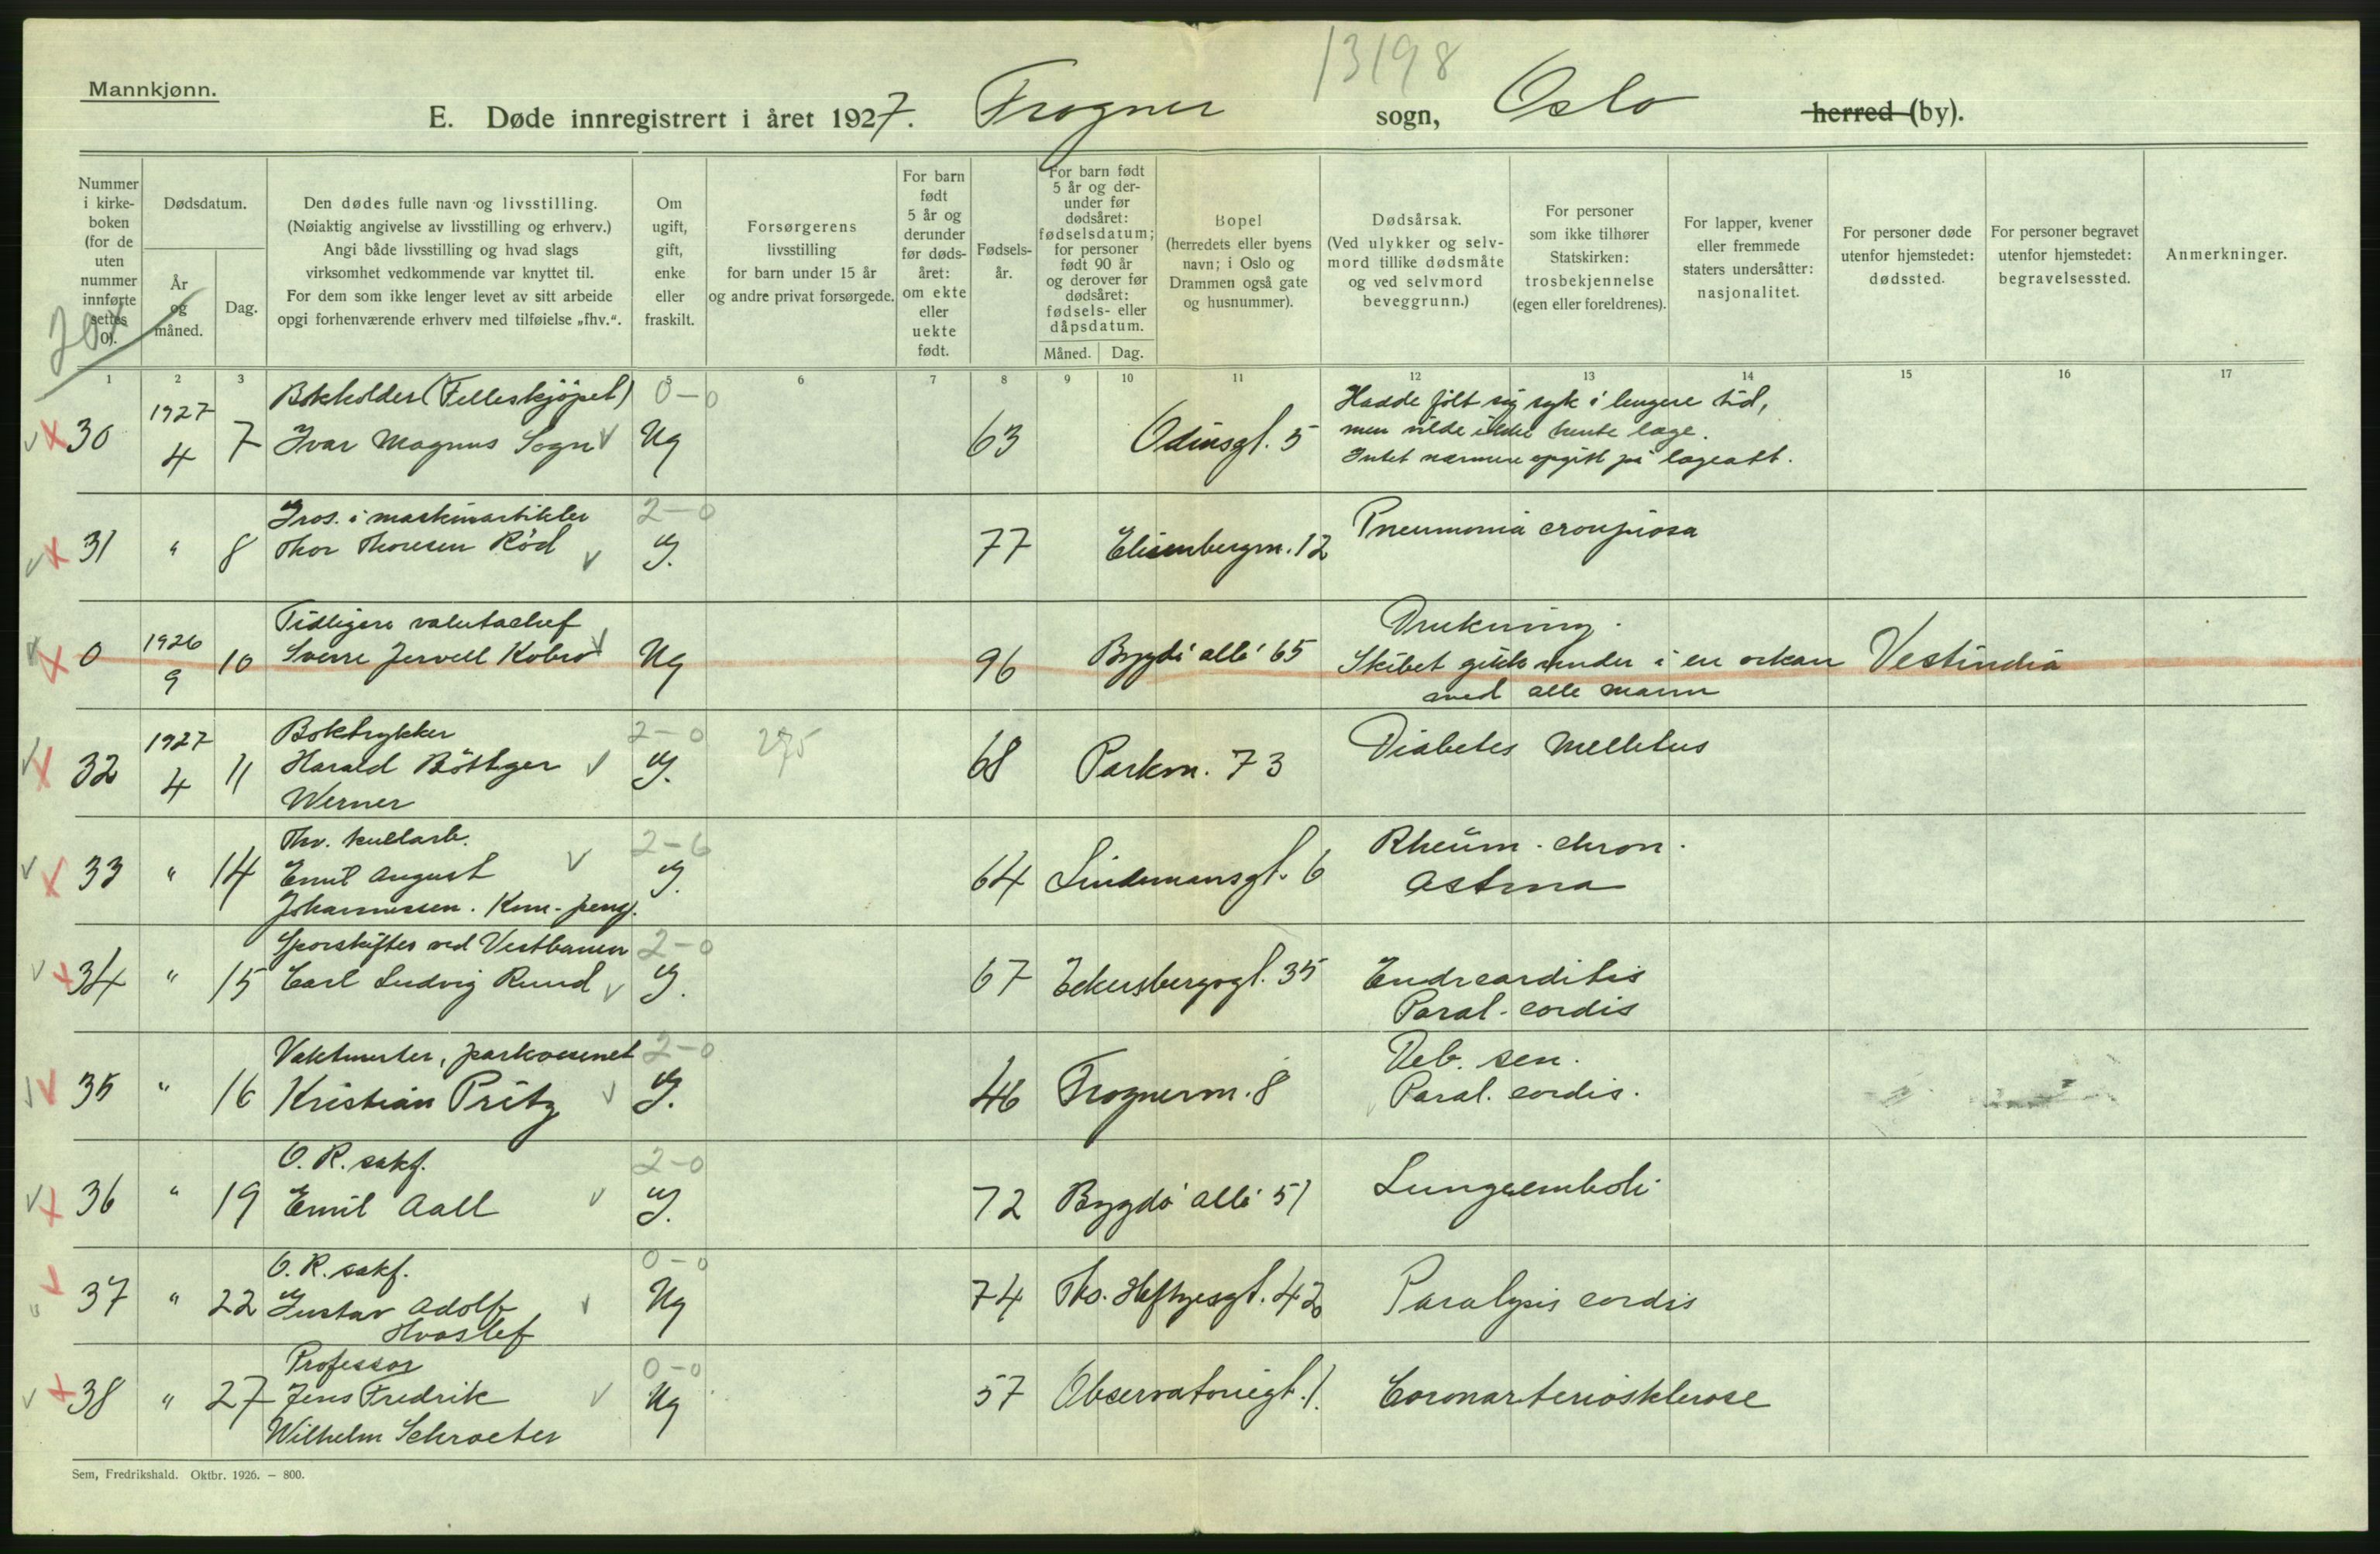 13198
Mannkjønn.
E. Døde innregistrert i året 1927. Frogner sogn, Oslo herred (by).
Nummer i kirke-boken (for de uten nummer innførte settes 0).
Dødsdatum.
År og måned.
Dag.
Den dødes fulle navn og livsstilling.
(Nøiaktig angivelse av livsstilling og erhverv.)
Angi både livsstilling og hvad slags
virksomhet vedkommende var knyttet til.
For dem som ikke lenger levet av sitt arbeide
opgi forhenværende erhverv med tilføielse „fhv.“.
Om ugift, gift, enke eller fraskilt.
Forsørgerens
livsstilling
for barn under 15 år
og andre privat forsørgede.
For barn født 5 år og derunder før døds-året: om ekte eller uekte født.
Fødsels-år.
For barn født 5 år og der-under før dødsåret: fødselsdatum; for personer født 90 år og derover før dødsåret: fødsels- eller dåpsdatum.
Måned. Dag.
Bopel
(herredets eller byens
navn; i Oslo og
Drammen også gate
og husnummer).
Dødsårsak.
(Ved ulykker og selv-
mord tillike dødsmåte
og ved selvmord
beveggrunn.)
For personer
som ikke tilhører
Statskirken:
trosbekjennelse
(egen eller foreldrenes).
For lapper, kvener
eller fremmede
staters undersåtter:
nasjonalitet.
For personer døde
utenfor hjemstedet:
dødssted.
For personer begravet
utenfor hjemstedet:
begravelsessted.
Anmerkninger.
1 2 3 5 6 7 8 9 10 11 12 13 14 15 16 17
Bokholder (Felleskjøpet) 0-0 Hadde følt sig syk i lengere tid,
30 1927 4 7 Ivar Magnus Sogn Ug 63 Odinsgt. 5 men vilde ikke hente læge.
Intet nærmere opgitt på lægeatt.
Gros. i maskinartikler 2-0
31 " 8 Thor Thoresen Rød g. 77 Elisenbergvn. 12 Pneumonia croupiosa
Tidligere valutachef Drukning.
0 1926 9 10 Sverre Jervell Kobro Ug 96 Bygdø allé 65 Skibet gikk under i en orkan Vestindia
med alle mann
Boktrykker 2-0 275
32 1927 4 11 Harald Böttger g. 68 Parkvn. 73 Diabetes mellitus
Werner
Fhv. kullarb. 2-6
33 " 14 Emil August g. 64 Lindemansgt. 6 Rheum. chron.
Johannessen. Kom-peng. Astma
Sporskifter ved Vestbanen 2-0
34 " 15 Carl Ludvig Rund g. 67 Eckersbergsgt. 35 Endocarditis
Paral. cordis
Vaktmester, parkvesenet 2-0 Deb. sen.
35 " 16 Kristian Pritz g. 46 Frognervn. 8 Paral. cordis.
O. R. sakf. 2-0
36 " 19 Emil Aall g. 72 Bygdø allé 51 Lungeemboli
O. R. sakf. 0-0
37 " 22 Gustav Adolf Ug 74 Tho. Heftyesgt. 42 Paralysis cordis
Hvoslef
Professor 0-0
38 " 27 Jens Fredrik Ug 57 Observatoriegt. 1. Coronarteriosklerose
Wilhelm Schroeter
Sem, Fredrikshald. Oktbr. 1926. — 800.